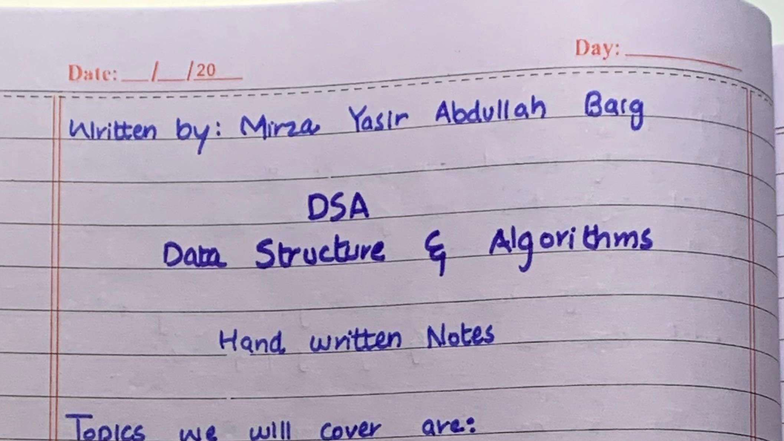 Date: __/__/20__ Day: ______
Written by: Mirza Yasir Abdullah Baig
DSA
Data Structure & Algorithms
Hand written Notes
Topics we will cover are: